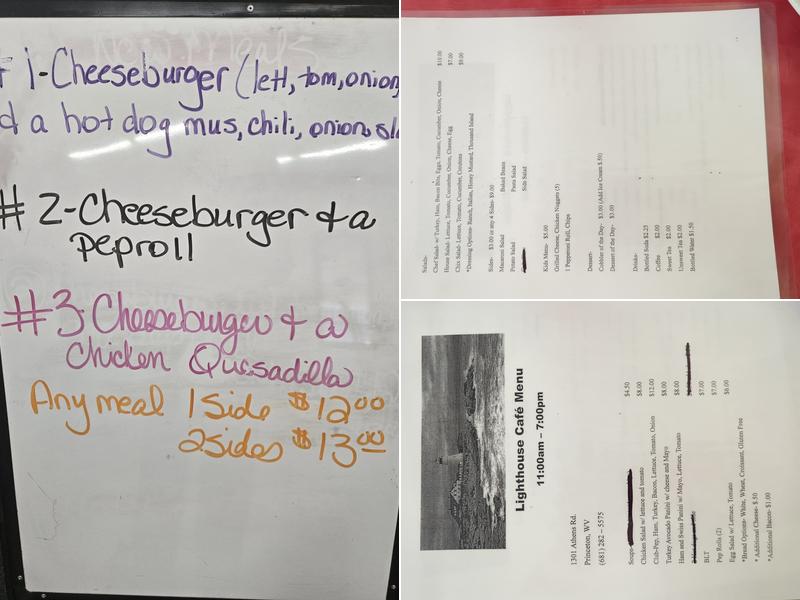 New Meals
# 1-Cheeseburger (lett, tom, onion,
& a hot dog mus, chili, onion, sl
# 2-Cheeseburger & a
peproll
#3-Cheeseburger & a
Chicken Quesadilla
Any meal 1 Side $12.00
2 sides $13.00
Salads-
Chef Salad- w/ Turkey, Ham, Bacon Bits, Eggs, Tomato, Cucumber, Onion, Cheese $10.00
House Salad- Lettuce, Tomato, Cucumber, Onion, Cheese, Egg $7.00
Chix Salad- Lettuce, Tomato, Cucumber, Croutons $9.00
*Dressing Options- Ranch, Italian, Honey Mustard, Thousand Island
Sides- $3.00 or any 4 Sides- $9.00
Macaroni Salad Baked Beans
Potato Salad Pasta Salad
Side Salad
Kids Menu- $5.00
Grilled Cheese, Chicken Nuggets (5)
1 Pepperoni Roll, Chips
Dessert-
Cobbler of the Day- $3.00 (Add Ice Cream $.50)
Dessert of the Day- $3.00
Drinks-
Bottled Soda $2.25
Coffee $2.00
Sweet Tea $2.00
Unsweet Tea $2.00
Bottled Water $1.50
Lighthouse Café Menu
11:00am – 7:00pm
1301 Athens Rd.
Princeton, WV
(681) 282 – 5575
Soups- $4.50
Chicken Salad w/ lettuce and tomato $8.00
Club-Pep, Ham, Turkey, Bacon, Lettuce, Tomato, Onion $12.00
Turkey Avocado Panini w/ cheese and Mayo $8.00
Ham and Swiss Panini w/ Mayo, Lettuce, Tomato $8.00
BLT $7.00
Pep Rolls (2) $7.00
Egg Salad w/ Lettuce, Tomato $6.00
*Bread Options- White, Wheat, Croissant, Gluten Free
* Additional Cheese- $.50
*Additional Bacon- $1.00